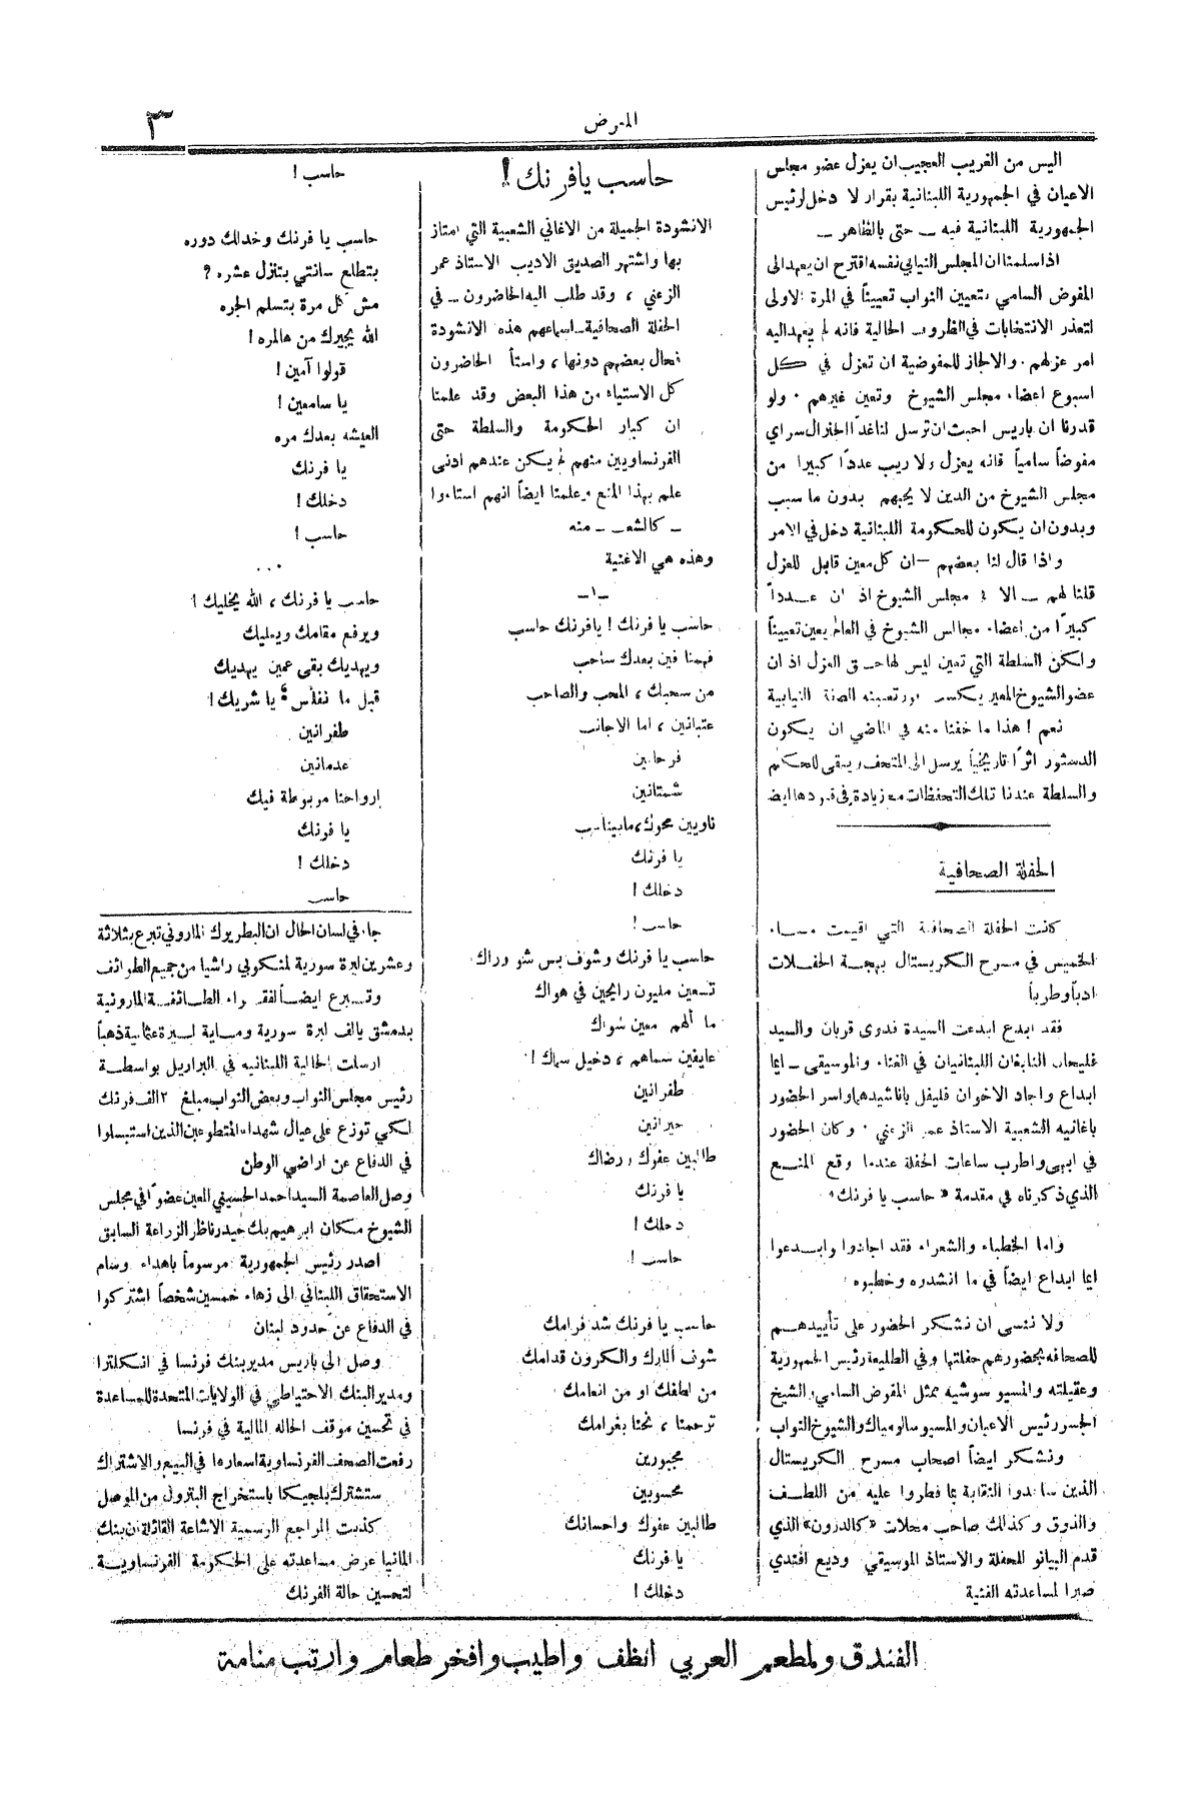 المعرض
٣
اليس من الغريب العجيب ان يعزل عضو مجلس
الاعيان في الجمهورية اللبنانية بقرار لا دخل لرئيس
الجمهورية اللبنانية فيه — حتى بالظاهر —
اذا سلمنا ان المجلس النيابي نفسه اقترح ان يعهد الى
المفوض السامي بتعيين النواب تعييناً في المرة الاولى
لتعذر الانتخابات في الظروف الحالية فانه لم يعهد اليه
امر عزلهم . والا لجاز للمفوضية ان تعزل في كل
اسبوع اعضاء مجلس الشيوخ وتعين غيرهم . ولو
قدرنا ان باريس احبت ان ترسل لنا غداً الجنرال سراي
مفوضاً سامياً فانه يعزل ولا ريب عدداً كبيرا من
مجلس الشيوخ من الذين لا يحبهم بدون ما سبب
وبدون ان يكون للحكومة اللبنانية دخل في الامر
واذا قال لنا بعضهم — ان كل معين قابل للعزل
قلنا لهم — الا مجلس الشيوخ اذ ان عدداً
كبيراً من اعضاء مجالس الشيوخ في العالم يعين تعييناً
ولكن السلطة التي تعين ليس لها حق العزل اذ ان
عضو الشيوخ المعين يكسب فور تعيينه الصفة النيابية
نعم ! هذا ما خفنا منه في الماضي ان يكون
الدستور اثراً تاريخياً يرسل الى المتحف ويبقى للحكم
والسلطة عندنا تلك التحفظات مع زيادة في قيودها ايضا
الحفلة الصحافية
كانت الحفلة الصحافية التي اقيمت مساء
الخميس في مسرح الكريستال بهجة الحفلات
ادباً وطرباً
فقد ابدع ابدعت السيدة فدوى قربان والسيد
غليحاب النابغان اللبنانيان في الغناء والموسيقى — ايما
ابداع واجاد الاخوان فليفل باناشيدهما واسر الحضور
باغانيه الشعبية الاستاذ عمر الزعني . وكان الحضور
في ابهى واطرب ساعات الحفلة عندما وقع المنع
الذي ذكرناه في مقدمة « حاسب يا فرنك »
واما الخطباء والشعراء فقد اجادوا وابدعوا
ايما ابداع ايضاً في ما انشدوه وخطبوه
ولا ننسى ان نشكر الحضور على تأييدهم
للصحافه بحضورهم حفلتها وفي الطليعة رئيس الجمهورية
وعقيلته والمسيو سوشيه ممثل المفوض السامي والشيخ
الجسر رئيس الاعيان والمسيو سالومياك والشيوخ النواب
ونشكر ايضاً اصحاب مسرح الكريستال
الذين ساعدوا النقابة بما فطروا عليه من اللطف
والذوق وكذلك صاحب محلات «كالدرون» الذي
قدم البيانو للحفلة والاستاذ الموسيقي وديع افندي
صبرا لمساعدته الفنية
حاسب يا فرنك !
الانشودة الجميلة من الاغاني الشعبية التي امتاز
بها واشتهر الصديق الاديب الاستاذ عمر
الزعني ، وقد طلب اليه الحاضرون — في
الحفلة الصحافية — اسماعهم هذه الانشودة
فحال بعضهم دونها ، واستأ الحاضرون
كل الاستياء من هذا البعض وقد علمنا
ان كبار الحكومة والسلطة حتى
الفرنساويين منهم لم يكن عندهم ادنى
علم بهذا المنع وعلمنا ايضاً انهم استاءوا
— كالشعب — منه
وهذه هي الاغنية
— ١ —
حاسب يا فرنك ! يا فرنك حاسب
فهمنا فين بعدك ساحب
من سحبك ، المحب والصاحب
عتبانين ، اما الاجانب
فرحانين
شمتانين
ناويين محوك ، ما بيناسب
يا فرنك
دخلك !
حاسب !
حاسب يا فرنك وشوف بس شو وراك
تسعين مليون رايحين في هواك
ما ألهم معين سواك
عايفين سماهم ، دخيل سماك !
طفرانين
حيرانين
طالبين عفوك ورضاك
يا فرنك
دخلك !
حاسب !
حاسب يا فرنك شد فرامك
شوف المارك والكرون قدامك
من لطفك او من انعامك
ترحمنا ، نحنا بغرامك
مجبورين
محسوبين
طالبين عفوك واحسانك
يا فرنك
دخلك !
حاسب !
حاسب يا فرنك وخدالك دوره
بتطلع سانتي بتنزل عشره ؟
مش كل مرة بتسلم الجره
الله يجيرك من هالمره !
قولوا آمين !
يا سامعين !
العيشه بعدك مره
يا فرنك
دخلك !
حاسب !
...
حاسب يا فرنك ، الله يخليك !
ويرفع مقامك ويعليك
ويهديك بقى عمين يهديك
قبل ما نفلس ؛ يا شريك !
طفرانين
عدمانين
ارواحنا مربوطة فيك
يا فرنك
دخلك !
حاسب
جاء في لسان الحال ان البطريرك الماروني تبرع بثلاثة
وعشرين ليرة سورية لمنكوبي راشيا من جميع الطوائف
وتبرع ايضاً لفقراء الطائفة المارونية
بدمشق بالف ليرة سورية وماية ليرة عثمانية ذهباً
ارسلت الجالية اللبنانيه في البرازيل بواسطة
رئيس مجلس النواب وبعض النواب مبلغ ٢ الف فرنك
لكي توزع على عيال شهداء المتطوعين الذين استبسلوا
في الدفاع عن اراضي الوطن
وصل العاصمة السيد احمد الحسيني المعين عضواً في مجلس
الشيوخ مكان ابرهيم بك حيدر ناظر الزراعة السابق
اصدر رئيس الجمهورية مرسوماً باهداء وسام
الاستحقاق اللبناني الى زهاء خمسين شخصاً اشتركوا
في الدفاع عن حدود لبنان
وصل الى باريس مدير بنك فرنسا في انكلترا
ومدير البنك الاحتياطي في الولايات المتحدة للمساعدة
في تحسين موقف الحاله المالية في فرنسا
رفعت الصحف الفرنساوية اسعارها في البيع والاشتراك
ستشترك بلجيكا باستخراج البترول من الموصل
كذبت المراجع الرسمية الاشاعة القائلة ان بنك
المانيا عرض مساعدته على الحكومة الفرنساوية
لتحسين حالة الفرنك
الفندق ولمطعم العربي انظف واطيب وافخر طعام وارتب منامة